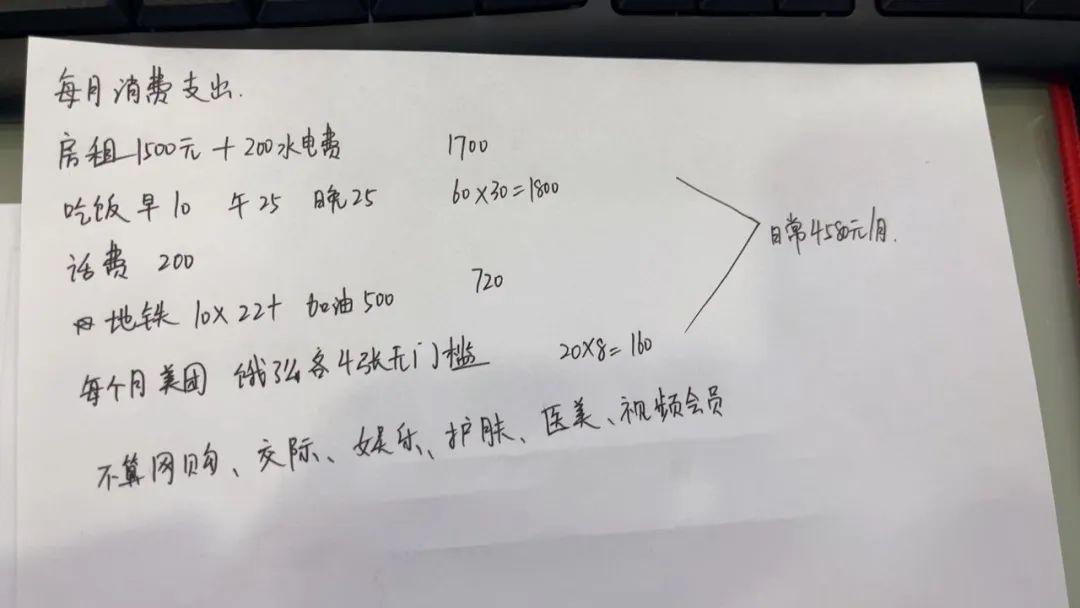 每月消费支出.
房租1500元+200水电费 1700
吃饭 早10 午25 晚25 60×30=1800
话费 200
地铁 10×22+ 加油500 720
日常4580元/月.
每个月美团 饿了么各4张无门槛 20×8=160
不算网购、交际、娱乐、护肤、医美、视频会员